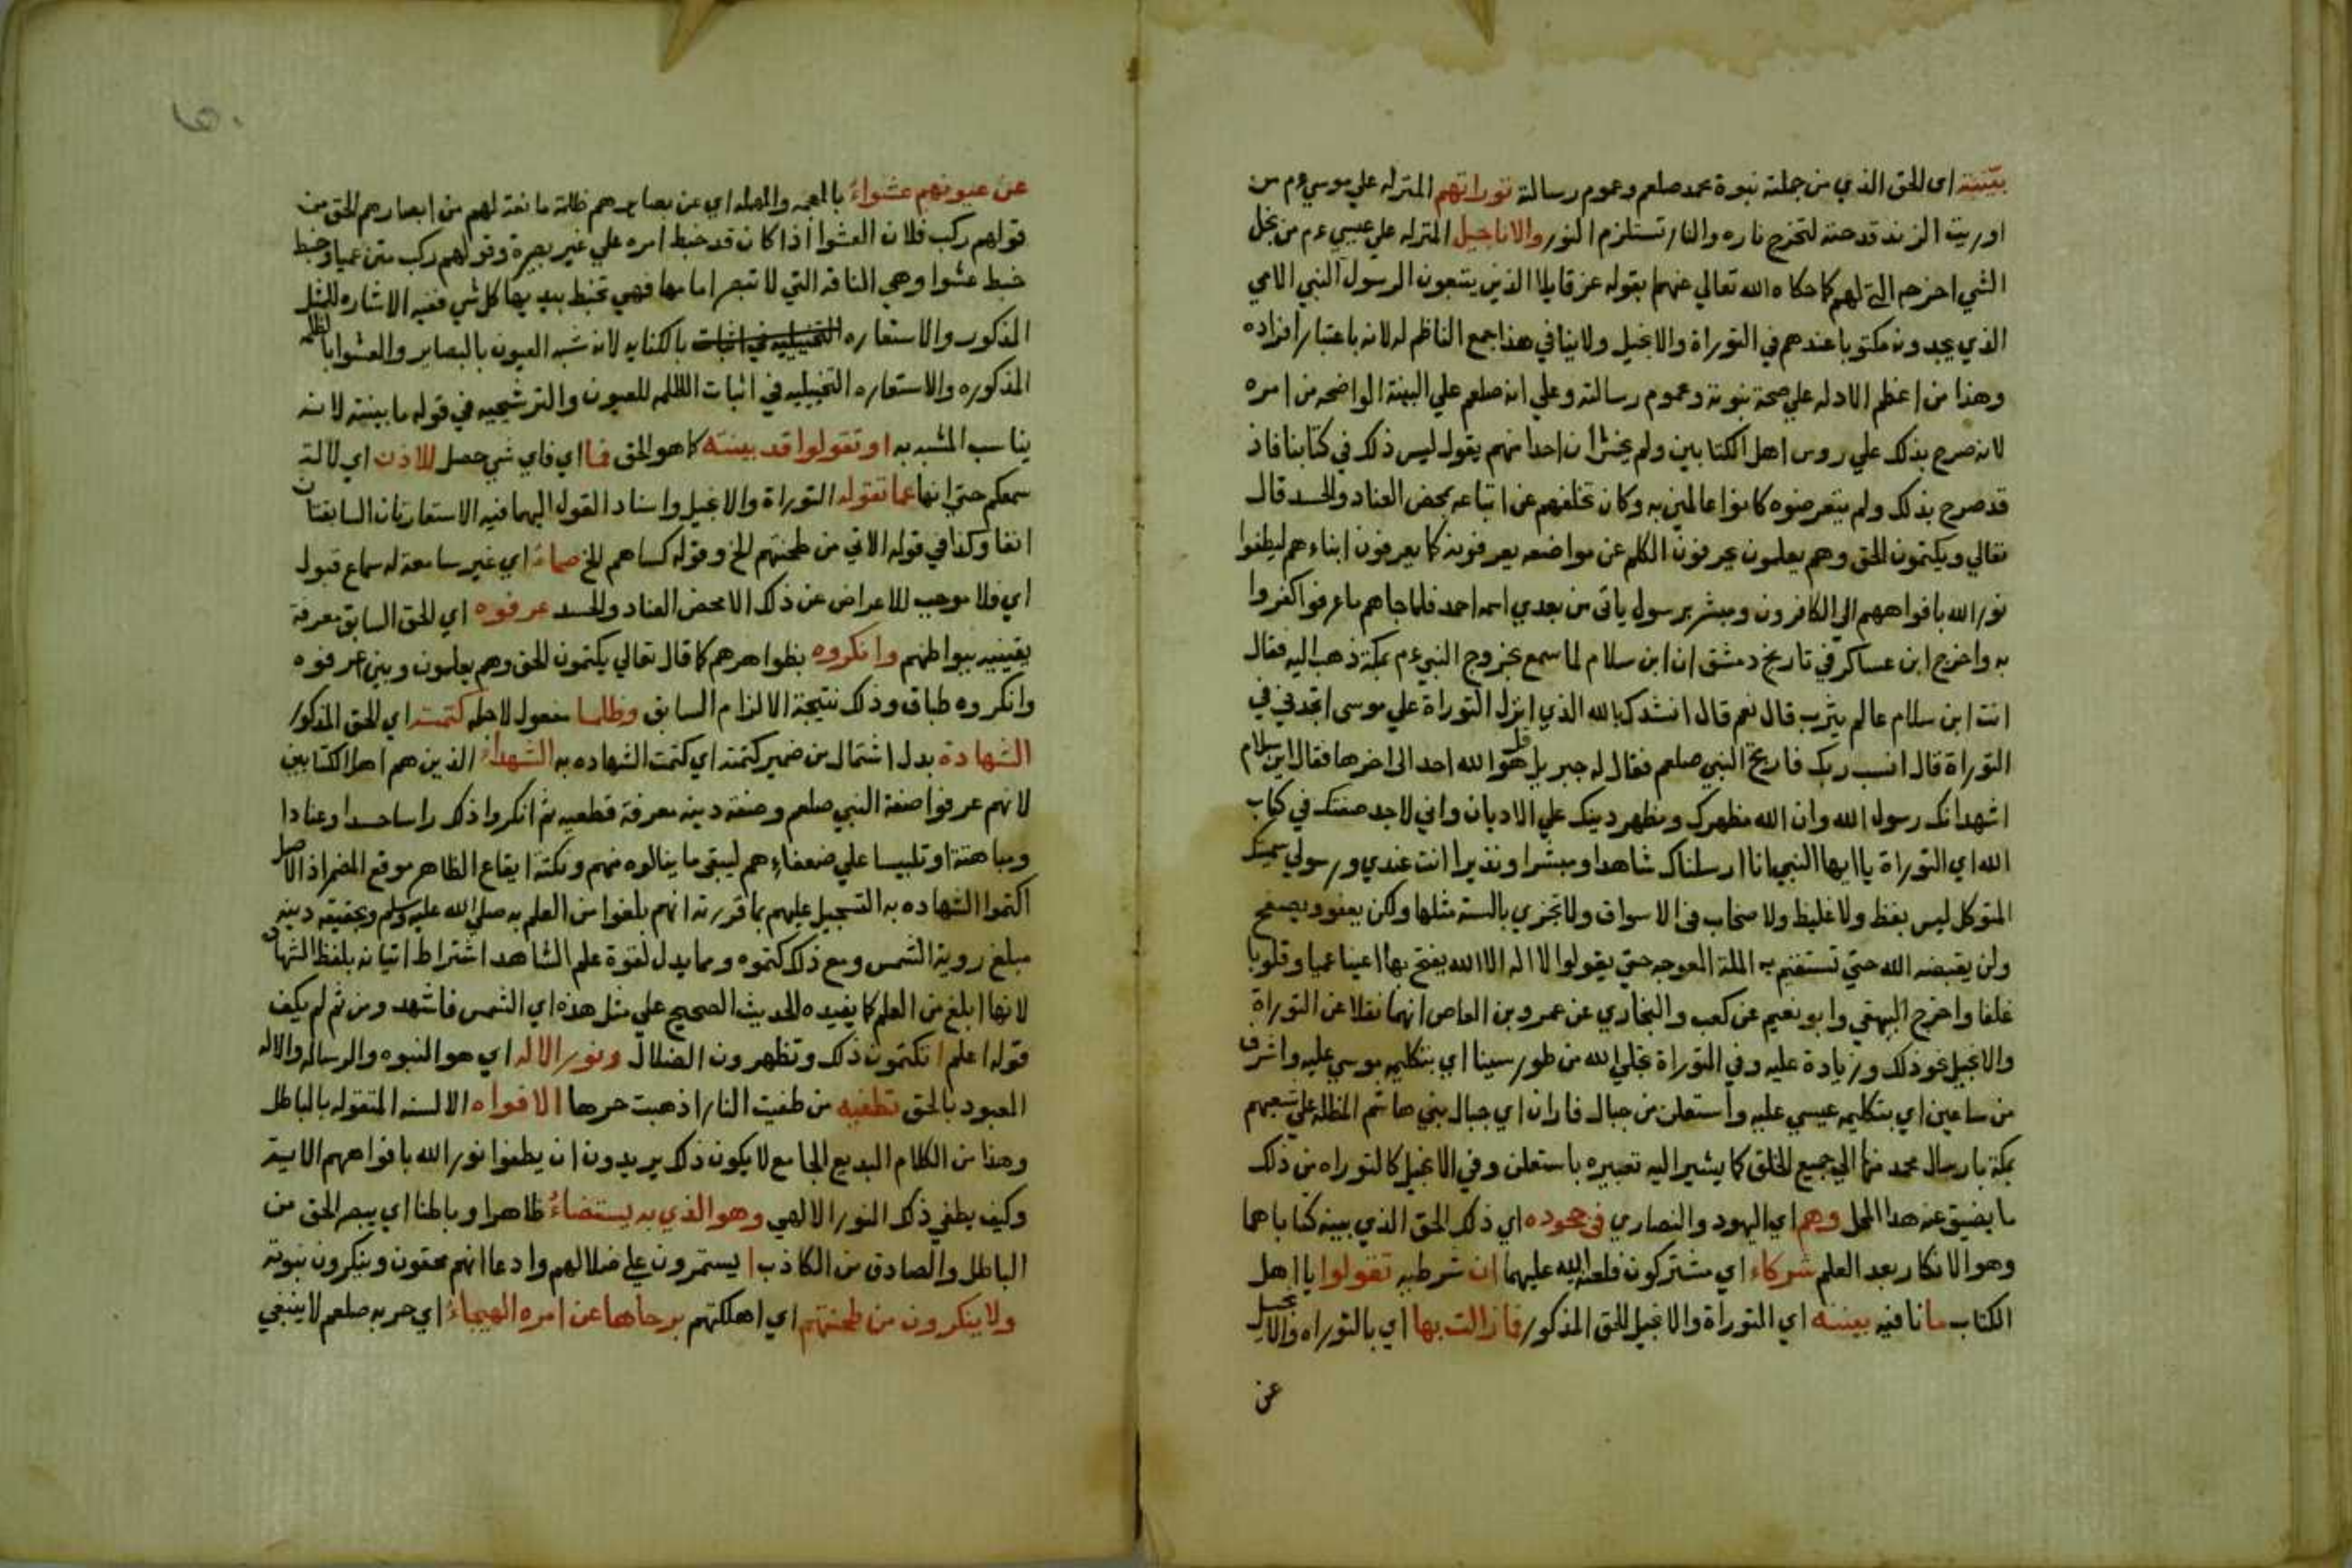 بيّنته اى للحق الذي من جملته نبوة محمد صلعم وعموم رسالته توراتهم المنزله علي موسي ءم من
اوريت الزند قدحته لتخرج ناره والنار تستلزم النور والاناجيل المنزله علي عيسي ءم من نجل
الشي اخرجه لهم كما حكاه الله تعالي عنهما بقوله عز قايلا الذين يتبعون الرسول النبي الامي
الذي يجدونه مكتوبا عندهم في التوراة والانجيل ولاينافي هذا جمع الناظم له لانه باعتبار افراده
وهذا من اعظم الادله علي صحة نبوته وعموم رسالته وعلي انه صلعم علي البينة الواضحه من امره
لانه صرح بذلك علي روس اهل الكتابين ولم يخش ان احدا منهم يقول ليس ذلك في كتابنا فاذ
قد صرح بذلك ولم يتعرضوه كانوا عالمين به وكان تخلفهم عن اتباعه بمحض العناد والحسد قال
تعالي ويكتمون الحق وهم يعلمون يحرفون الكلم عن مواضعه يعرفونه كما يعرفون ابناءهم ليطفوا
نور الله بافواههم الي الكافرون ومبشر برسول ياتى من بعدي اسمه احمد فلما جاهم ما عرفوا كفروا
به واخرج ابن عساكر في تاريخ دمشق ان ابن سلام لما سمع بخروج النبي ءم بمكة ذهب اليه فقال
انت ابن سلام عالم يثرب قال نعم قال انشدك بالله الذي انزل التوراة علي موسى اتجدني في
التوراة قال انسب ربك فارتج النبي صلعم فقال له جبريل قل هو الله احد الى اخرها فقال ابن سلام
اشهد انك رسول الله وان الله مظهرك ومظهر دينك علي الاديان واني لاجد صفتك في كتاب
الله اي التوراة يا ايها النبي انا ارسلناك شاهدا ومبشرا ونذيرا انت عندي ورسولي سميتك
المتوكل ليس بفظ ولا غليظ ولا صخاب فى الاسواق ولا تجزي بالسيئة مثلها ولكن يعفو ويصفح
ولن يقبضه الله حتي تستقيم به الملة العوجه حتي يقولوا لا اله الا الله يفتح بها اعينا عميا وقلوبا
غلفا واخرج البيهقي وابو نعيم عن كعب والبخاري عن عمرو بن العاص انهما نقلا عن التوراة
والانجيل نحو ذلك وزيادة عليه وفي التوراة تجلي الله من طور سينا اي بتكليمه موسي عليه واشرف
من ساعين اي بتكليمه عيسي عليه واستعلن من جبال فاران اي جبال بني هاشم المظلة علي شعبهم
بمكة بارسال محمد منها الي جميع الخلق كما يشير اليه تعبيره باستعلن وفي الانجيل كالتوراه من ذلك
ما يضيق عنه هذا المحل وهم اي اليهود والنصاري فى جحوده اي ذلك الحق الذي بينه كتاباهما
وهو الانكار بعد العلم شركاء اي مشتركون فلعنة الله عليهما ان شرطيه تقولوا يا اهل
الكتاب ما نافيه بينته اي التوراة والانجيل للحق المذكور فازالت بها اي بالتوراه والانجيل
عن
عن عيونهم عشواءُ بالمعجمه والمهمله اي عن بصايرهم ظلمة مانعة لهم من ابصارهم الحق من
قولهم ركب فلان العشوا اذا كان قد خبط امره علي غير بصيرة وقولهم ركب متن عميا وخبط
خبط عشوا وهي الناقه التي لا تبصر امامها فهي تخبط بيديها كل شي ففيه الاشاره للمثل
المذكور والاستعاره التخييليه في اثبات بالكنايه لانه شبه العيون بالبصاير والعشوا بالظلمه
المذكوره والاستعاره التخييليه في اثبات الظلمه للعيون والترشيحيه في قوله ما بينته لانه
يناسب المشبه به او تقولوا قد بينته كما هو الحق فما اي فاي شي حصل للاذن اي لالة
سمعكم حتي انها عما تقوله التوراة والانجيل واسناد القول اليهما فيه الاستعارتان السابقتان
انفا وكذا في قوله الاتي من طحنتهم الخ وقوله كساهم الخ صماءُ اي غير سامعة له سماع قبول
اي فلا موجب للاعراض عن ذلك الا محض العناد والحسد عرفوه اي للحق السابق معرفة
يقينيه ببواطنهم وانكروه بظواهرهم كما قال تعالي يكتمون الحق وهم يعلمون وبين عرفوه
وانكروه طباق وذلك نتيجة الالزام السابق وظلما مفعول لاجله كتمته اي للحق المذكور
الشهادة بدل اشتمال من ضمير كتمته اي كتمت الشهاده به الشهداءُ الذين هم اهل الكتابين
لانهم عرفوا صفة النبي صلعم وصفة دينه معرفة قطعيه ثم انكروا ذلك راسا حسدا وعنادا
ومباهتة او تلبيسا علي ضعفاءهم ليبقي ما ينالوه منهم ونكتة ايقاع الظاهر موقع المضمر اذ الاصل
اكتموا الشهاده به التسجيل عليهم بما قررته انهم بلغوا من العلم به صلي الله عليه وسلم وبحقيقه دينه
مبلغ روية الشمس ومع ذلك كتموه ومما يدل لقوة علم الشاهد اشتراط اتيانه بلفظ الشهادة
لانها ابلغ من العلم كما يفيده الحديث الصحيح علي مثل هذه اي الشمس فاشهد ومن ثم لم يكف
قوله اعلم اتكتمون ذلك وتظهرون الضلال ونور الاله اي هو النبوه والرساله والاله
المعبود بالحق تطفيه من طفيت النار اذهبت حرها الافواه الالسنه المتقوله بالباطل
وهذا من الكلام البديع الجامع لا يكون ذلك يريدون ان يطفوا نور الله بافواههم الاية
وكيف يطفي ذلك النور الالهي وهو الذي به يستضاءُ ظاهرا وباطنا اي يبصر الحق من
الباطل والصادق من الكاذب ا يستمرون علي ضلالهم وادعا انهم محقون وينكرون نبوته
ولا ينكرون من طحنتهم اي اهلكتهم برحاها عن امره الهيجاءُ اي حربه صلعم لا ينبغي